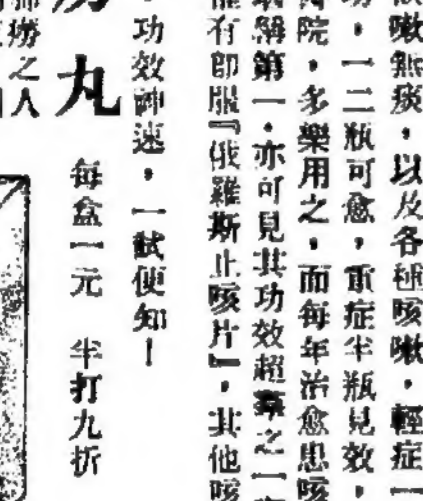 嗽無痰，以及各種咳嗽，輕症一
，一二瓶可愈，重症半瓶見效，
院，多樂用之，而每年治愈患咳
第一，亦可見其功效超羣之一
有即服『俄羅斯止咳片』，其他咳
，功效神速，一試便知！
丸 每盒一元 半打九折
癆之人